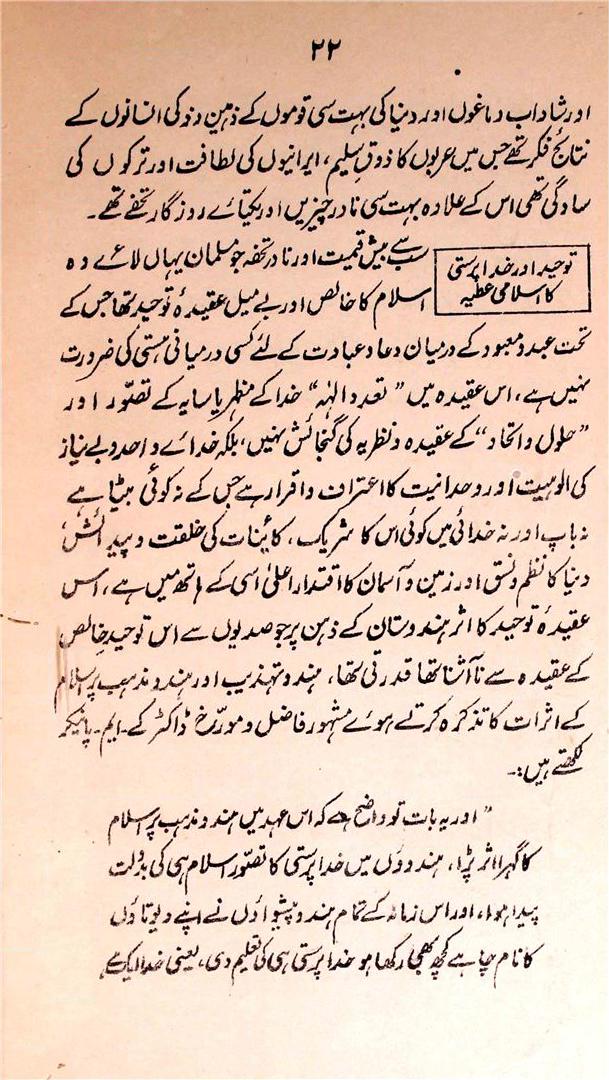 ۲۲
اور شاداب دماغوں اور دنیا کی بہت سی قوموں کے ذہین و ذکی انسانوں کے
نتائج فکر تھے جس میں عربوں کا ذوق سلیم، ایرانیوں کی لطافت اور ترکوں کی
سادگی تھی اس کے علاوہ بہت سی نادر چیزیں اور یکتائے روزگار تحفے تھے۔
توحید اور خدا پرستی
کا اسلامی عطیہ
سب سے بیش قیمت اور نادر تحفہ جو مسلمان یہاں لائے وہ
اسلام کا خالص اور بے میل عقیدۂ توحید تھا جس کے
تحت عبد و معبود کے درمیان دعا و عبادت کے لئے کسی درمیانی ہستی کی ضرورت
نہیں ہے، اس عقیدہ میں "تعدد الٰہ" خدا کے مظہر یا سایہ کے تصوّر اور
"حلول و اتحاد" کے عقیدہ و نظریہ کی گنجائش نہیں، بلکہ خدائے واحد و بے نیاز
کی الوہیت اور وحدانیت کا اعتراف و اقرار ہے جس کے نہ کوئی بیٹا ہے
نہ باپ اور نہ خدائی میں کوئی اس کا شریک، کائنات کی خلقت و پیدائش،
دنیا کا نظم و نسق اور زمین و آسمان کا اقتدار اعلیٰ اسی کے ہاتھ میں ہے، اس
عقیدۂ توحید کا اثر ہندوستان کے ذہن پر جو صدیوں سے اس توحید خالص
کے عقیدہ سے نا آشنا تھا قدرتی تھا، ہندو تہذیب اور ہندو مذہب پر اسلام
کے اثرات کا تذکرہ کرتے ہوئے مشہور فاضل و مورّخ ڈاکٹر کے۔ ایم۔ پانیکر
لکھتے ہیں:۔
"اور یہ بات تو واضح ہے کہ اس عہد میں ہندو مذہب پر اسلام
کا گہرا اثر پڑا، ہندوؤں میں خدا پرستی کا تصوّر اسلام ہی کی بدولت
پیدا ہوا، اور اس زمانہ کے تمام ہندو پیشواؤں نے اپنے دیوتاؤں
کا نام چاہے کچھ بھی رکھا ہو خدا پرستی ہی کی تعلیم دی، یعنی خدا ایک ہے